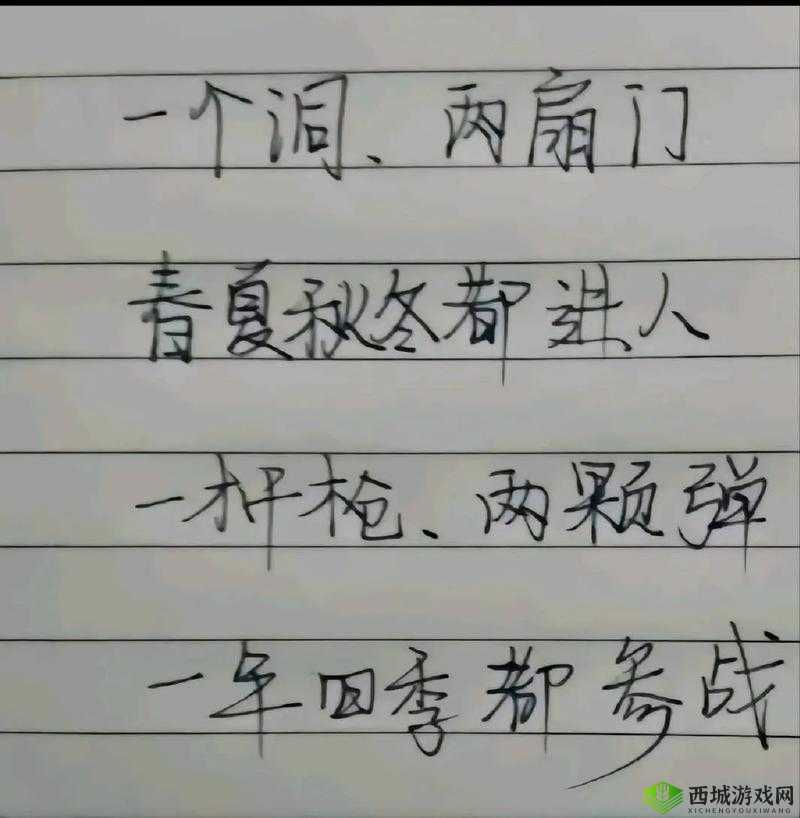 一个洞、两扇门
春夏秋冬都进人
一杆枪、两颗弹
一年四季都参战
西城游戏网
XICHENGYOUXIWANG